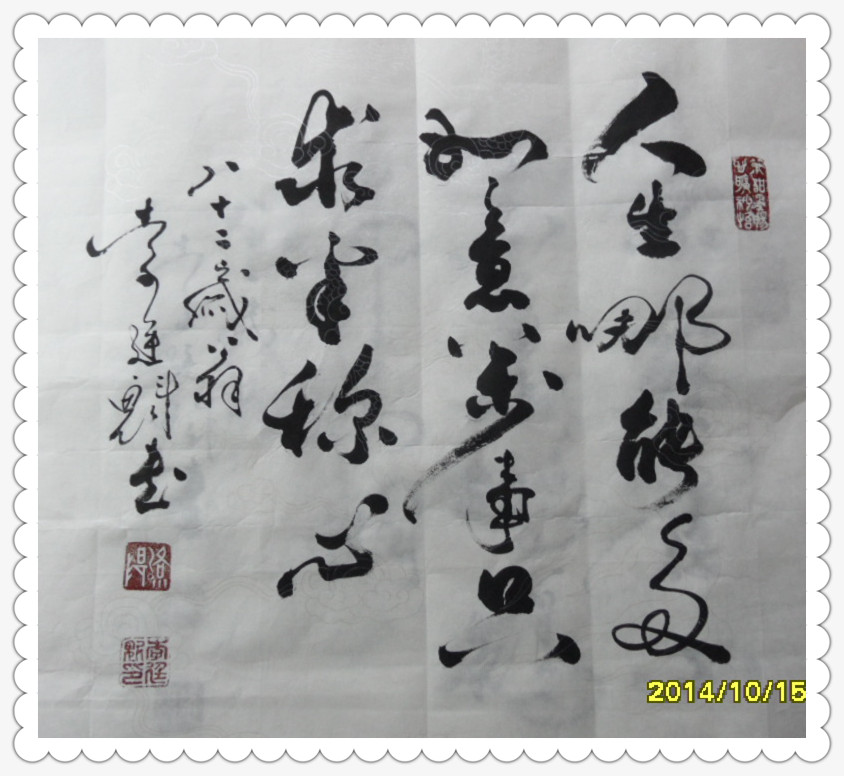 人生哪能多
如意万事只
求半称心
八十二岁翁
李廷魁书
2014/10/15